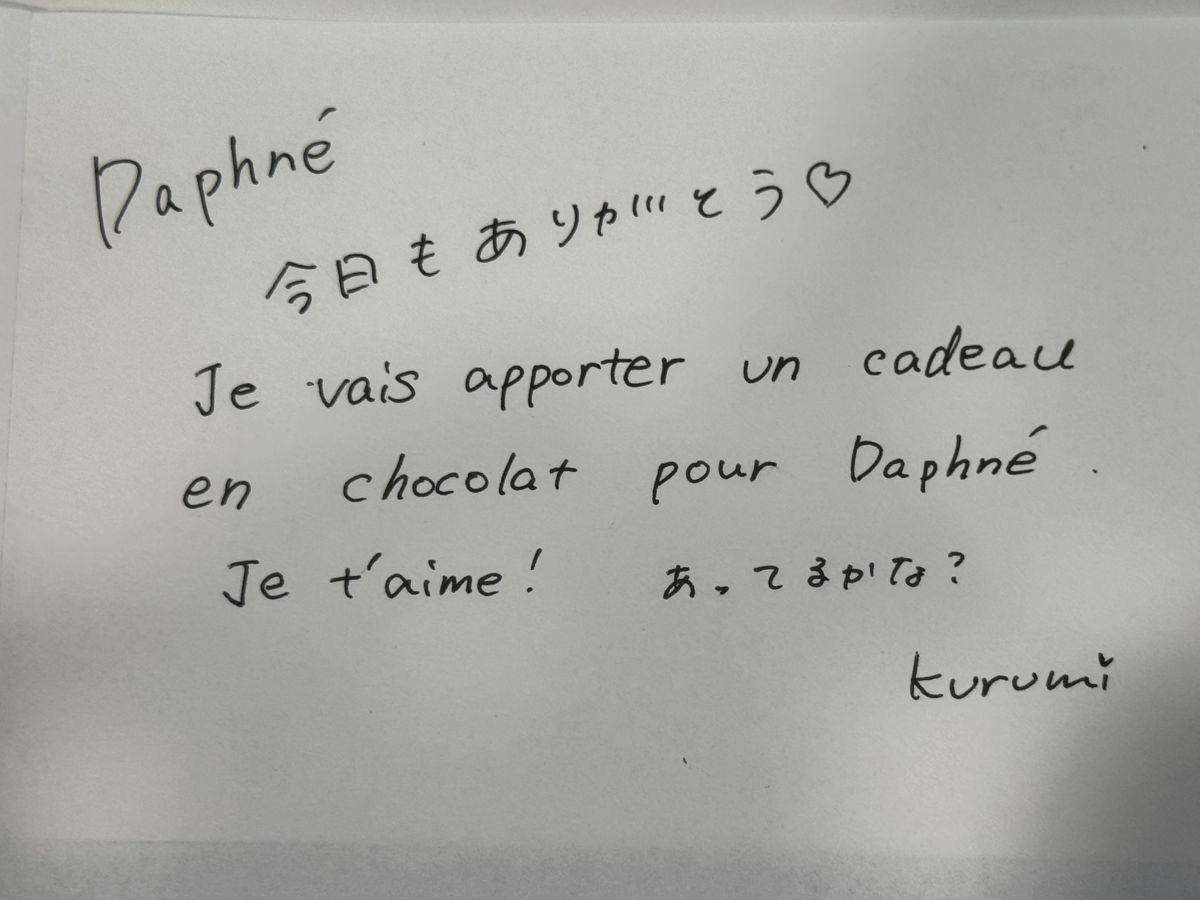 Daphné
今日もありがとう♡
Je vais apporter un cadeau
en chocolat pour Daphné.
Je t'aime! あってるかな?
kurumi